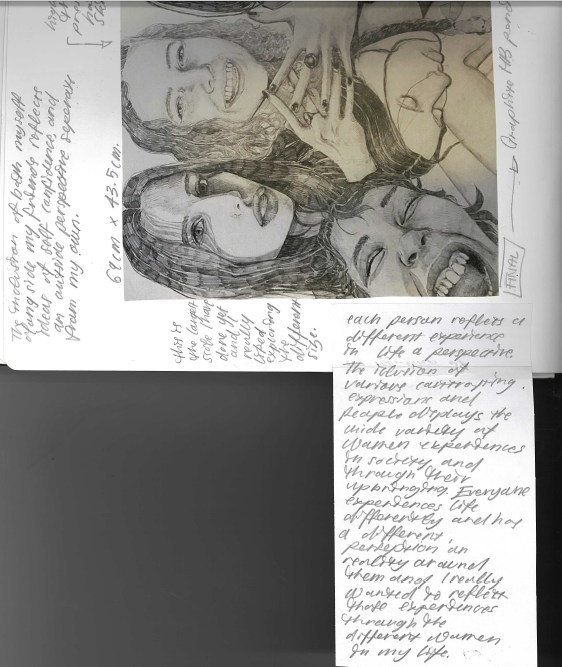 The inclusion of both myself
alongside my friends reflects
ideas of self confidence, and
an outside perspective seperate
from my own.
69cm x 43.5cm.
this is
the largest
size I have
done yet
and I
really
liked
exploring
the
different
size.
FINAL
Graphite HB penc
each person reflects a
different experience
in life a perspective.
The idution of
various contrasting
expressions and
people displays the
wide variety of
women experiences
in society and
through their
upbringing. Everyone
experiences life
differently and has
a different
perception on
reality around
them and I really
wanted to reflect
those experiences
through the
different women
in my life.